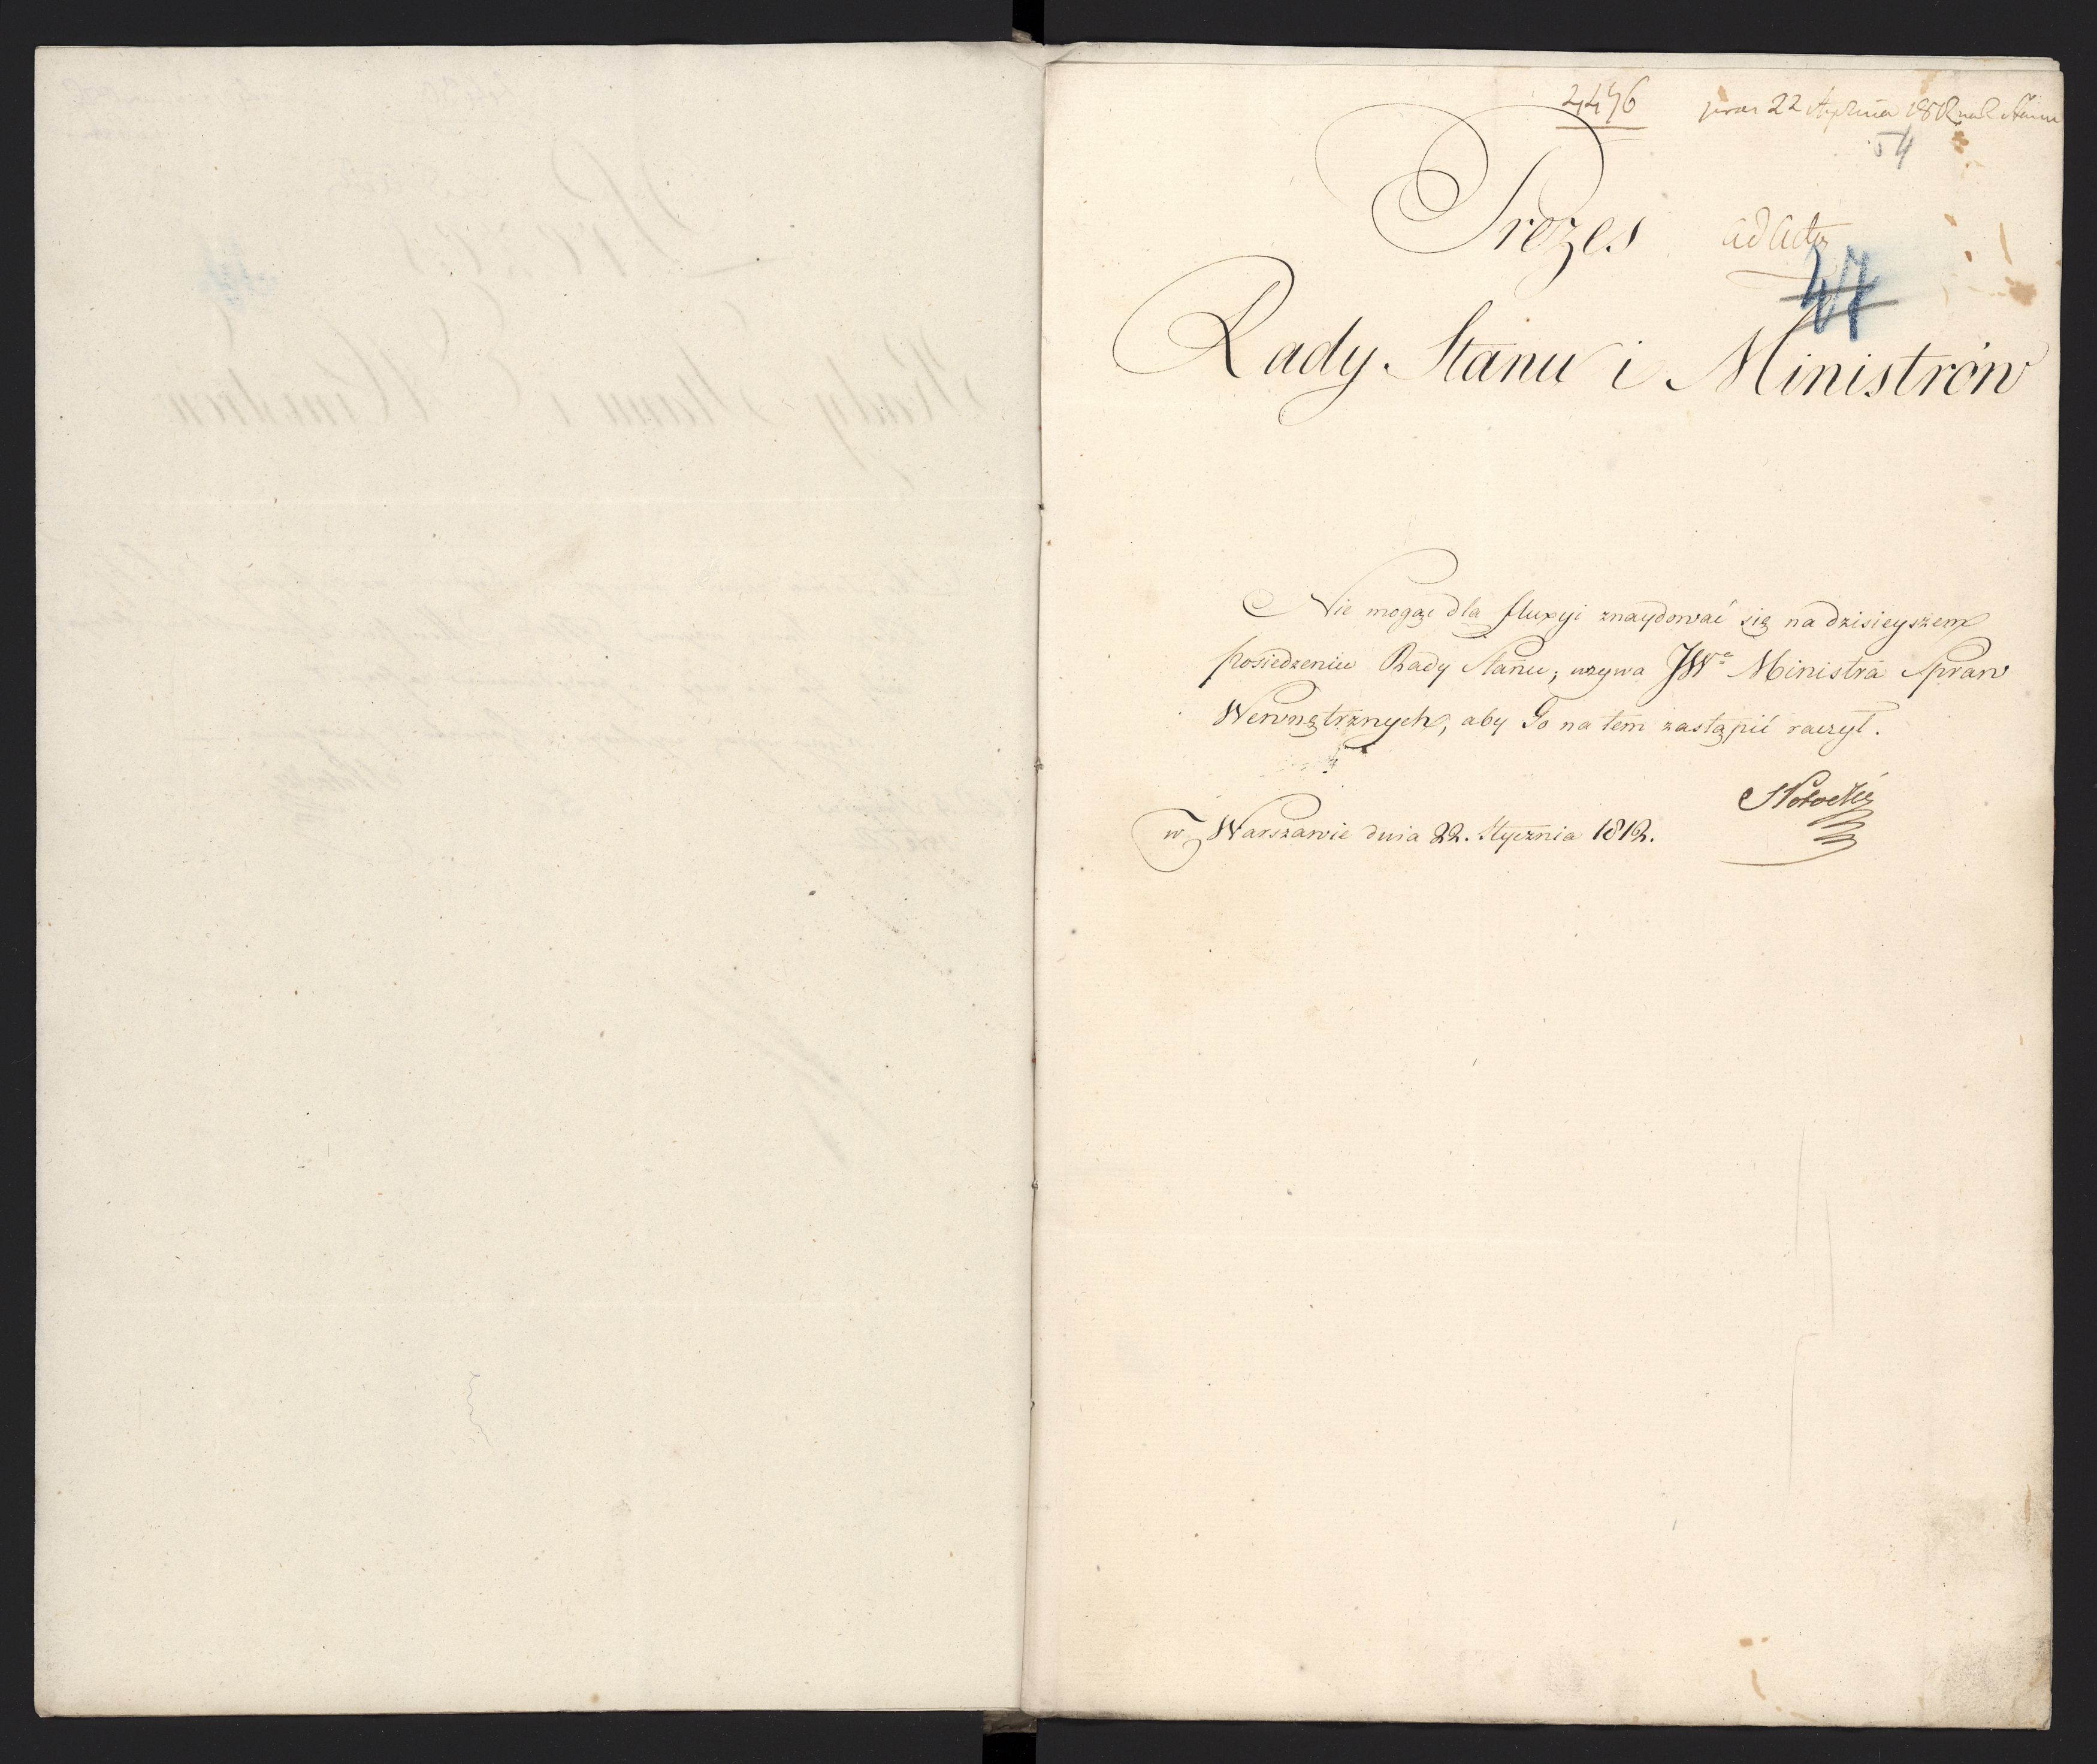 4476
praes 22 Stycznia 1812 na R. Stanu
54
Prezes
ad acta
47
Rady Stanu i Ministrów
Nie mogąc dla fluxyi znaydować się na dzisieyszem
Posiedzeniu Rady Stanu; wzywa JWo Ministra Spraw
Wewnętrznych, aby Go na tem zastąpić raczył.
SPotocki
w Warszawie dnia 22. Stycznia 1812.